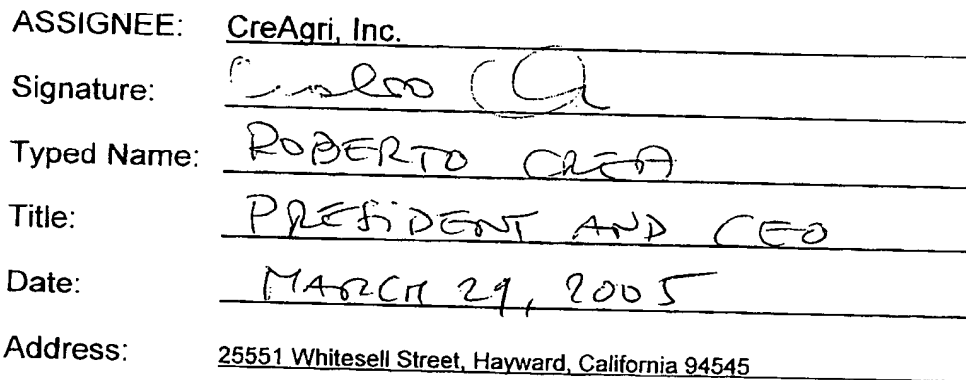 ASSIGNEE: CreAgri, Inc.
Signature:
Typed Name: ROBERTO CREA
Title: PRESIDENT AND CEO
Date: MARCH 29, 2005
Address: 25551 Whitesell Street, Hayward, California 94545